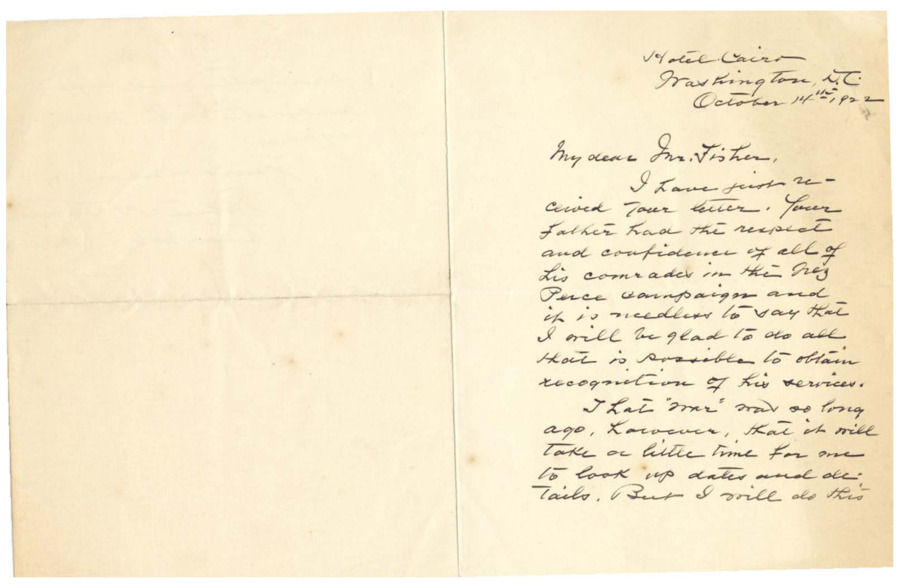 Hotel Cairo
Washington, D.C.
October 14th, 1922
My dear Mr. Fisher,
I have just re-
ceived your letter. Your
father had the respect
and confidence of all of
his comrades in the Nez
Perce campaign and
it is needless to say that
I will be glad to do all
that is possible to obtain
recognition of his services.
That "war" was so long
ago, however, that it will
take a little time for me
to look up dates and de-
tails. But I will do this